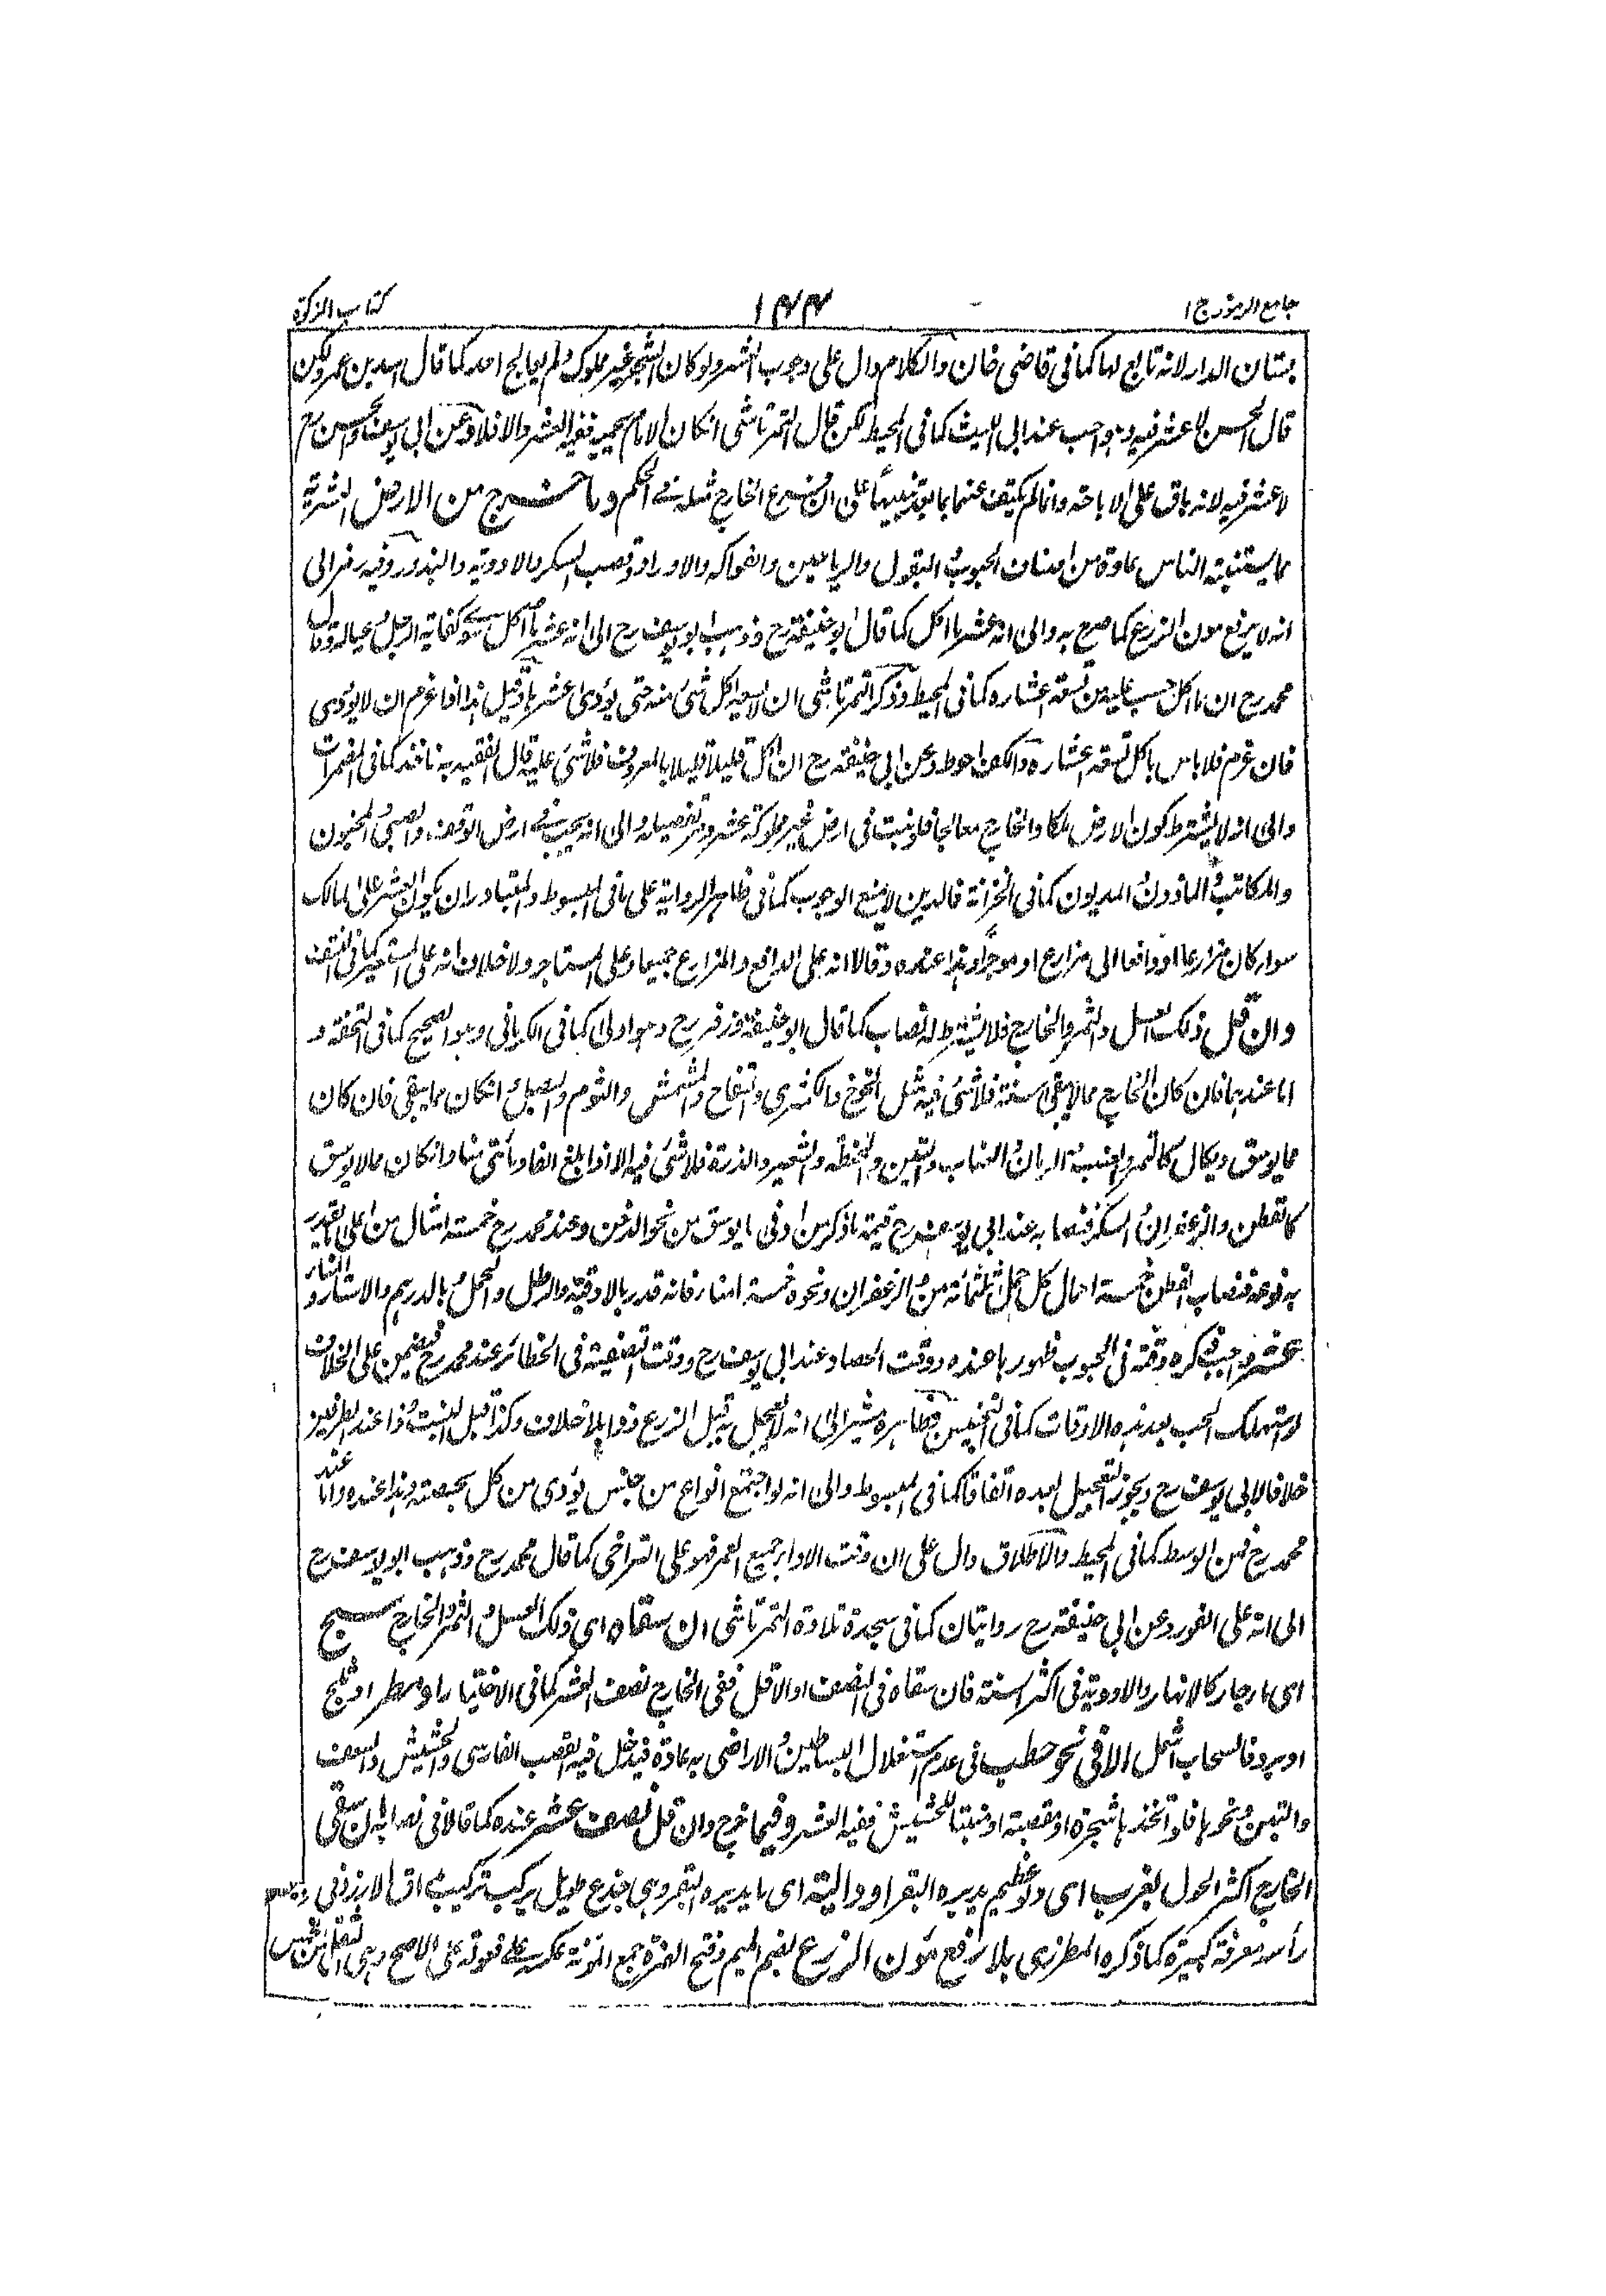 جامع الرموز ج ١
١٤٤
كتاب الزكوة
بستان الدار لانه تابع لها كما فى قاضى خان والكلام دال على وجوب العشر ولو كان الشجر غير مملوك ولم يعالج احد كما قال اسد بن عمرو لكن
قال الحسن لا عشر فيه وهو واجب عند ابى الليث كما فى المحيط لكن قال التمرتاشى ان كان الامام يحميه ففيه العشر والا فلا وعن ابى يوسف والحسن رح
لا عشر فيه لانه باق على الاباحة وانما لم يكتف عنهما بما بعد تنبيها على ان الخارج مثله فى الحكم وما خرج من الارض العشرية
مما يستنبته الناس عادة من اصناف الحبوب والبقول والرياحين والفواكه والاوراد وقصب السكر والادوية والبذور وفيه رمز الى
انه لا يرفع مون الزرع كما صرح به والى انه عشر ما اكل كما قال ابو حنيفة رح وذهب ابو يوسف رح الى انه عشر ما اكل سوى كفاية الرجل وعياله وقال
محمد رح ان ما اكل حسب عليه من تسعة اعشاره كما فى المحيط وذكر التمرتاشى ان لا يسعه اكل شئ منه حتى يؤدى عشرها وقيل هذا اذا عزم ان لا يؤدى
فان عزم فلا باس باكل تسعة اعشاره والكف احوط وعن ابى حنيفة رح ان اكل قليلا قليلا بالمعروف فلا شئ عليه قال الفقيه به ناخذ كما فى المضمرات
والى انه لا يشترط كون الارض ملكا والخارج معالجا فلو نبت فى ارض غير مملوكة عشر ومر تفصيله والى انه يجب فى ارض الوقف والصبى والمجنون
والمكاتب والماذون المديون كما فى الخزانة فالدين لا يمنع الوجوب كما فى ظاهر الرواية على ما فى المبسوط والمتبادر ان يكون العشر على المالك
سواء كان مزارعا او دافعا الى مزارع او موجرا وهذا عنده وقالا انه على الدافع والمزارع جميعا وعلى المستاجر ولا خلاف انه على المستعير كما فى النتف
وان قل ذلك العسل والثمر والخارج فلا يشترط النصاب كما قال ابو حنيفة وزفر رح وهو اولى كما فى الكرمانى وهو الصحيح كما فى التحفة و
اما عندهما فان كان الخارج مما لا يبقى سنة فلا شئ فيه مثل الخوخ والكمثرى والتفاح والمشمش والثوم والبصل وان كان مما يبقى فان كان
مما يوسق ويكال كالتمر والعنب والعناب والتين والحنطة والشعير والذرة فلا شئ فيه الا اذا بلغ الفا ومائتى منا وان كان مما لا يوسق
كالقطن والزعفران والسكر فنصابه عند ابى يوسف رح قيمة ما ذكر من ادنى ما يوسق من نحو الدخن وعند محمد رح خمسة امثال من اعلى ما يقدر
به نوعه فنصاب القطن خمسة احمال كل حمل ثلثمائة من والزعفران ونحوه خمسة امناء فانه قدر بالاوقية والرطل والحمل بالدرهم والاستار و
عشر واجب ذكره وقته فى الحبوب ظهورها عنده ووقت الحصاد عند ابى يوسف رح ووقت التصفية فى الحظائر عند محمد رح فيضمن على الخلاف
لو استهلك الحب بعد هذه الاوقات كما فى التجنيس فظاهره مشير الى انه لا يعجل به قبل الزرع وذا بلا خلاف وكذا قبل النبت وذا عند الطرفين
خلافا لابى يوسف رح ويجوز التعجيل بعده اتفاقا كما فى المبسوط والى انه لو اجتمع انواع من جنس يؤدى من كل بحصته وهذا عنده واما عند
محمد رح فمن الوسط كما فى المحيط والاطلاق دال على ان وقت الاداء جميع العمر فهو على التراخى كما قال محمد رح وذهب ابو يوسف رح
الى انه على الفور وعن ابى حنيفة رح روايتان كما فى سجدة تلاوة التمرتاشى ان سقاه اى ذلك العسل والثمر والخارج سيح
اى ماء جار كالانهار والاودية فى اكثر السنة فان سقاه فى النصف او الاقل ففى الخارج نصف العشر كما فى الاختيار او مطر او ثلج
او برد فالسحاب اشمل الا فى نحو حطب فى عدم استغلال البساطين والاراضى به عادة فيدخل فيه القصب الفارسى والحشيش والسعف
والتبن ونحوها فلو اتخذها شجرة او مقصبة او منبتا للحشيش ففيه العشر وفيما خرج وان قل نصف عشر عنده كما قالا فى نصابه ان سقى
الخارج اكثر الحول بغرب اى دلو عظيم يديره البقر او دالية اى ما يديره البقر وهى جذع طويل يركب تركيب مداق الارز وفى
رأسه مغرفة كبيرة كما ذكره المطرزى بلا رفع مؤن الزرع بضم الميم وفتح الهمزة جمع المؤنة على الاصح وهى الثقل